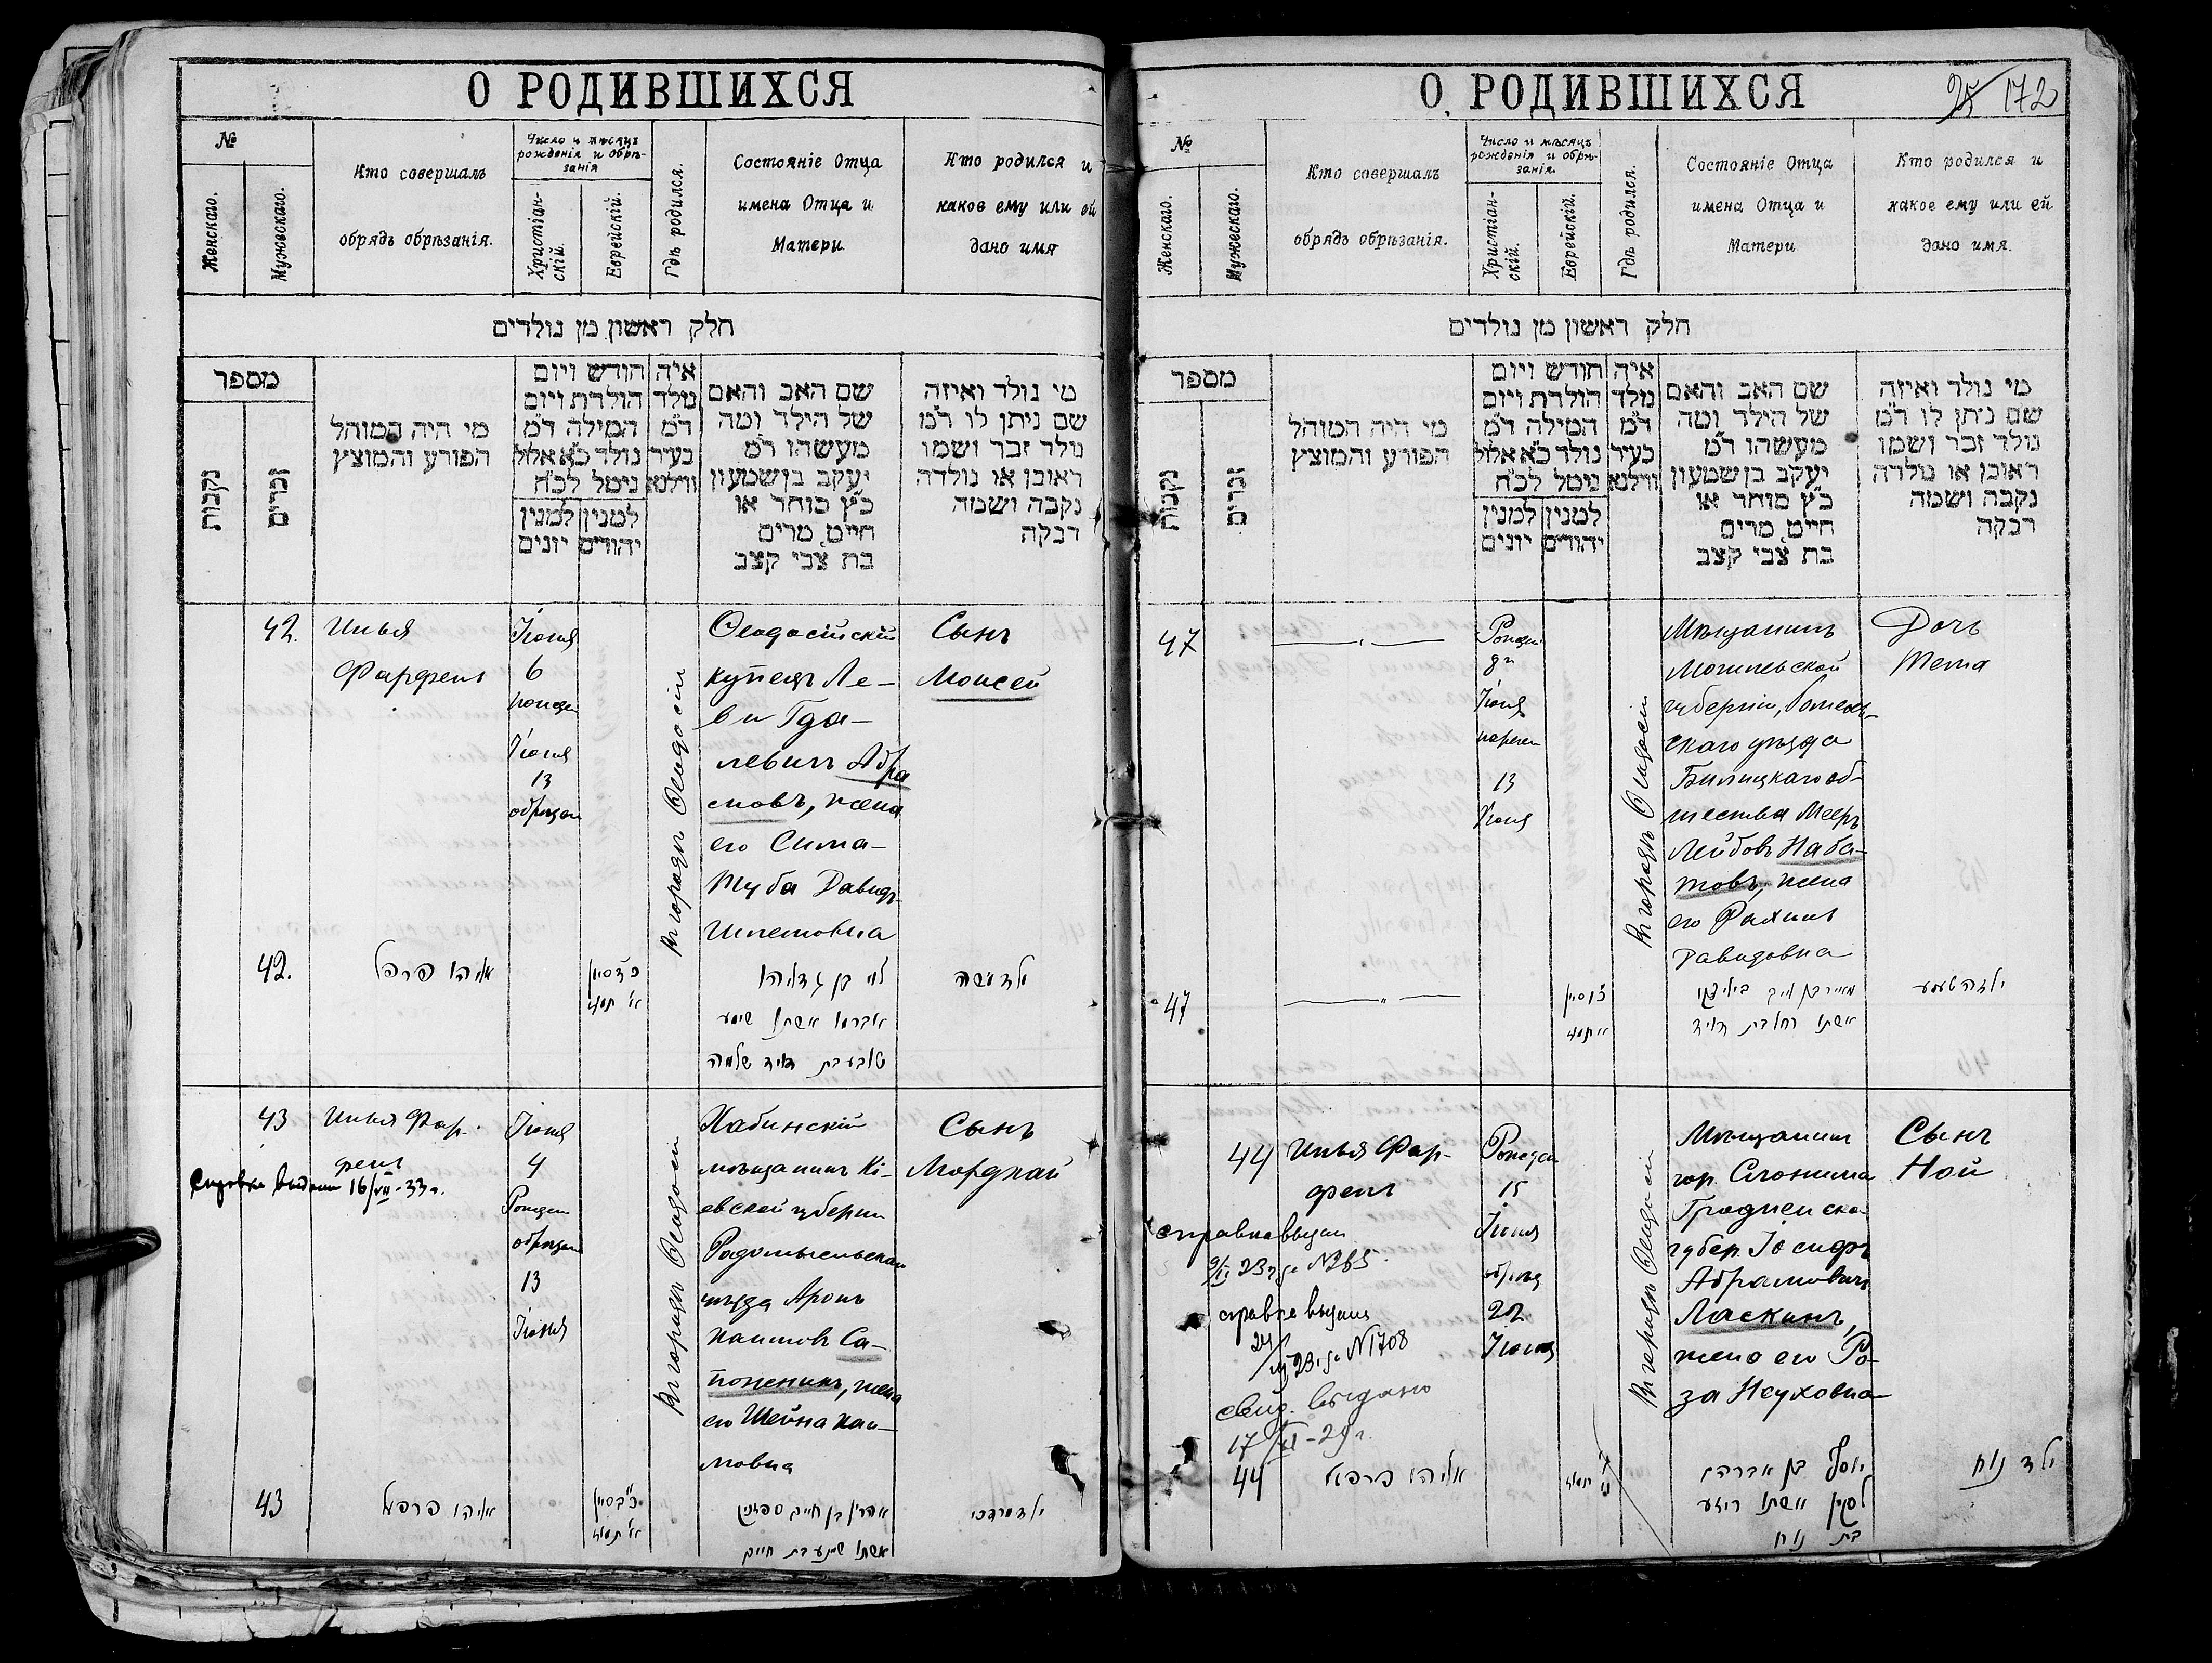 О РОДИВШИХСЯ
№
Женскаго.
Мужескаго.
Кто совершалъ
обрядъ обрѣзанія.
Число и мѣсяцъ
рожденія и обрѣ-
занія
Христіан-
скій.
Еврейскій.
Гдѣ родился.
Состояніе Отца
имена Отца и
Матери
Кто родился и
какое ему или ей
дано имя
חלק ראשון מן נולדים
מספר
נקבות
זכרים
מי היה המוהל
הפורע והמוצץ
חודש ויום
הולדת ויום
המילה ד״מ
נולד כ״א אלול
נימל לכ״ח
למנין
יונים
למנין
יהודים
איה
נולד
ד״מ
בעיר
ווילנא
שם האב והאם
של הילד ומה
מעשהו ד״מ
יעקב בן שמעון
כ״ץ סוחר או
חייט מרים
בת צבי קצב
מי נולד ואיזה
שם ניתן לו ד״מ
נולד זכר ושמו
ראובן או נולדה
נקבה ושמה
רבקה
42.
Илья
Фарфель
Іюня
6
Іюня
13
Въ городѣ Ѳеодосіи
Ѳеодосійскій
купецъ Ле-
ви Гда-
левичъ Абра
мовъ, жена
его Сима-
Туба Давидъ
Шлемовна
Сынъ
Моисей
42.
אליהו פרפל
לוי בן גדליהו
אברמו אשתו סימע
טובע בת דויד שלמה
ילד משה
43
Илья Фар-
фель
Справка выдана 16/VII-33 г.
Іюня
4
13
Іюня
Въ городѣ Ѳеодосіи
мѣщанинъ Кі-
евской губерніи
Радомысльскаго
уѣзда Аронъ
Хаимовъ Са-
поженикъ, жена
его Шейна Хаи-
мовна
Сынъ
Мордхай
43
אליהו פרפל
אהרן בן חיים
אשתו שיינע בת חיים
ילד מרדכי
О РОДИВШИХСЯ
25 172
№
Женскаго.
Мужескаго.
Кто совершалъ
обрядъ обрѣзанія.
Число и мѣсяцъ
рожденія и обрѣ-
занія.
Христіан-
скій.
Еврейскій.
Гдѣ родился.
Состояніе Отца
имена Отца и
Матери
Кто родился и
какое ему или ей
дано имя.
חלק ראשון מן נולדים
מספר
נקבות
זכרים
מי היה המוהל
הפורע והמוצץ
חודש ויום
הולדת ויום
המילה ד״מ
נולד כ״א אלול
נימל לכ״ח
למנין
יונים
למנין
יהודים
איה
נולד
ד״מ
בעיר
ווילנא
שם האב והאם
של הילד ומה
מעשהו ד״מ
יעקב בן שמעון
כ״ץ סוחר או
חייט מרים
בת צבי קצב
מי נולד ואיזה
שם ניתן לו ד״מ
נולד זכר ושמו
ראובן או נולדה
נקבה ושמה
רבקה
47
Іюня
13
Іюня
Въ городѣ Ѳеодосіи
Мѣщанинъ
Могилевской
губерніи, Гомель-
скаго уѣзда
Бѣлицкаго об-
щества Мееръ
Лейбовъ Наба-
товъ, жена
его Рахиль
Давидовна
Дочь
Тема
47
אשתו רחל בת דויד
ילדה טעמע
44
Илья Фар-
фель
справка выдана
23 г. за №265
справка выдана
24/ 23 г. за №1708
свид. выдано
17/XI-29 г.
15
Іюня
22
Іюня
Въ городѣ Ѳеодосіи
Мѣщанинъ
гор. Слонима
Гродненско
губер. Іосифъ
Абрамовичъ
Ласкинъ,
жена его Ро-
за Ноуховна
Сынъ
Ной
44
אליהו פרפל
יוסף בן אברהם
לסקין אשתו רייזע
בת נוח
ילד נוח